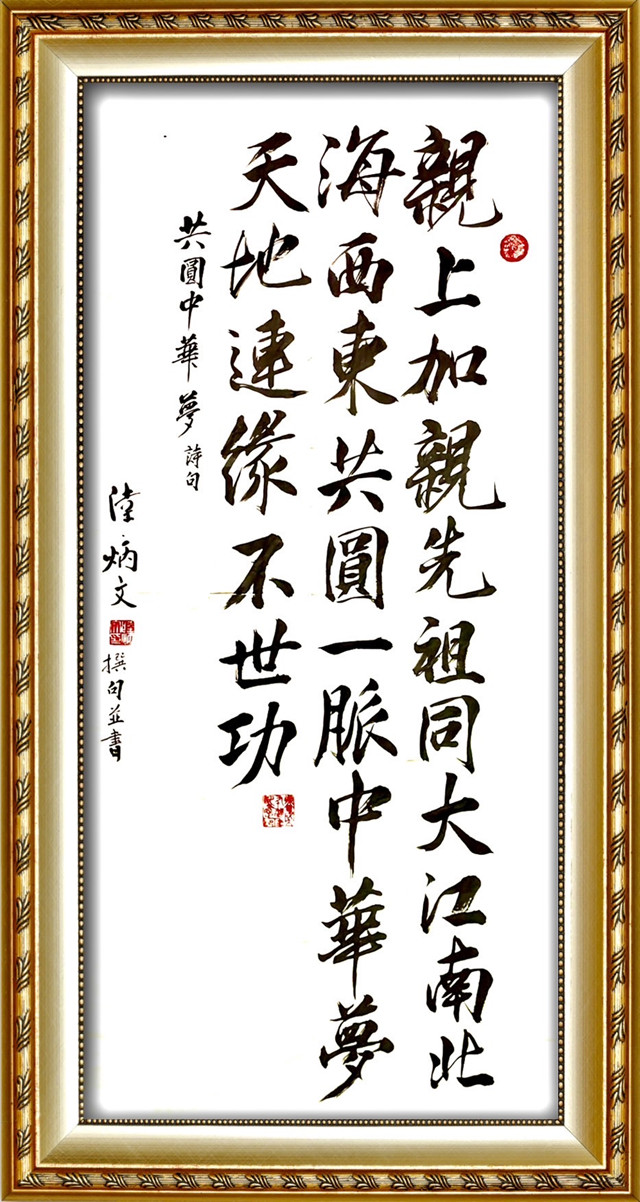 親上加親先祖同大江南北
海西東共圓一脈中華夢
天地連緣不世功
共圓中華夢 詩句
炳文 撰句並書